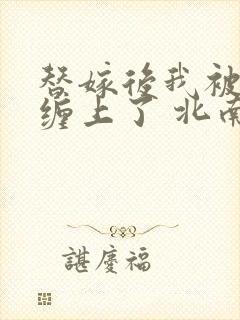 替嫁後我被
缠上了 北南
諶慶福